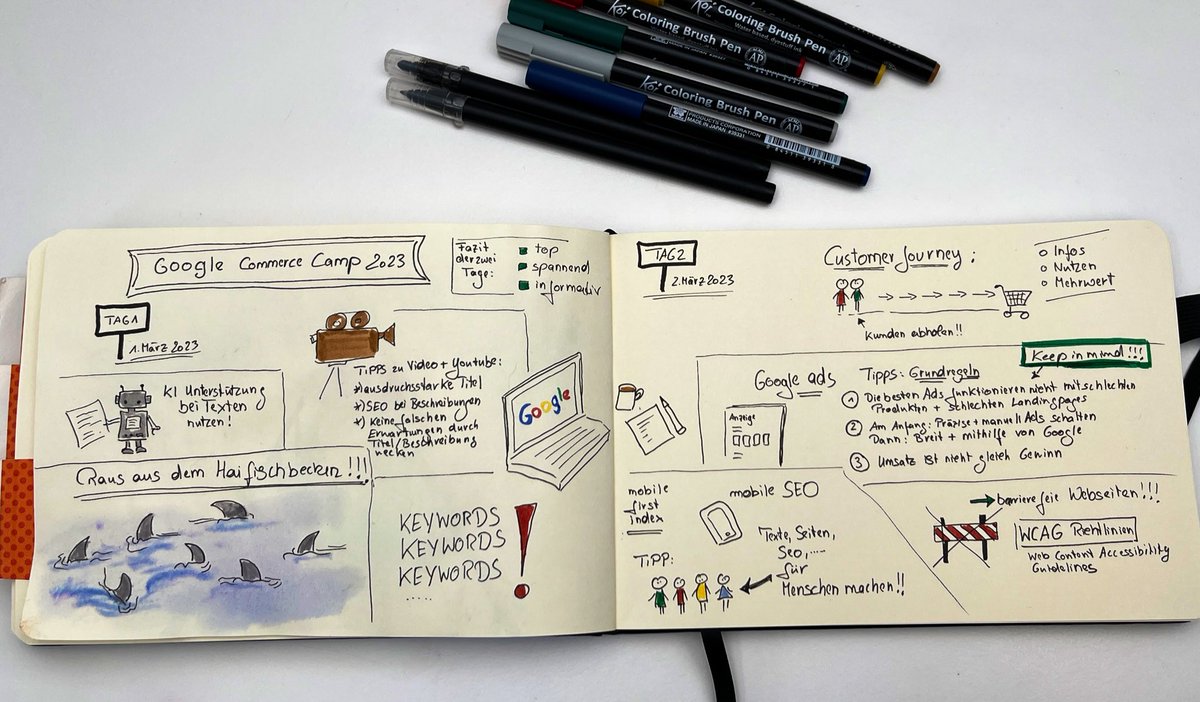 Koi Coloring Brush Pen
Koi Coloring Brush Pen
Water based, dyestuff ink
AP
AP
Koi Coloring Brush Pen
AP
PRODUCTS CORPORATION
MADE IN JAPAN
Google Commerce Camp 2023
Fazit
der zwei
Tage:
top
spannend
informativ
TAG 1
1. März 2023
KI Unterstützung
bei Texten
nutzen!
Tipps zu Video + Youtube:
*) ausdrucksstarke Titel
*) SEO bei Beschreibungen
*) Keine falschen
Erwartungen durch
Titel/Beschreibung
wecken
Google
Raus aus dem Haifischbecken !!!
KEYWORDS
KEYWORDS
KEYWORDS
.....
!
TAG 2
2. März 2023
Customer Journey:
Infos
Nutzen
Mehrwert
Kunden abholen!!
Keep in mind!!!
Google ads
Anzeige
Tipps: Grundregeln
1 Die besten Ads funktionieren nicht mit schlechten
Produkten + schlechten Landingpages
2 Am Anfang: Präzise + manuell Ads schalten
Dann: Breit + mithilfe von Google
3 Umsatz ist nicht gleich Gewinn
mobile
first
index
mobile SEO
Texte, Seiten,
Seo, ....
für
Menschen machen!!
TIPP:
barrierefreie Webseiten!!!
WCAG Richtlinien
Web Content Accessibility
Guidelines